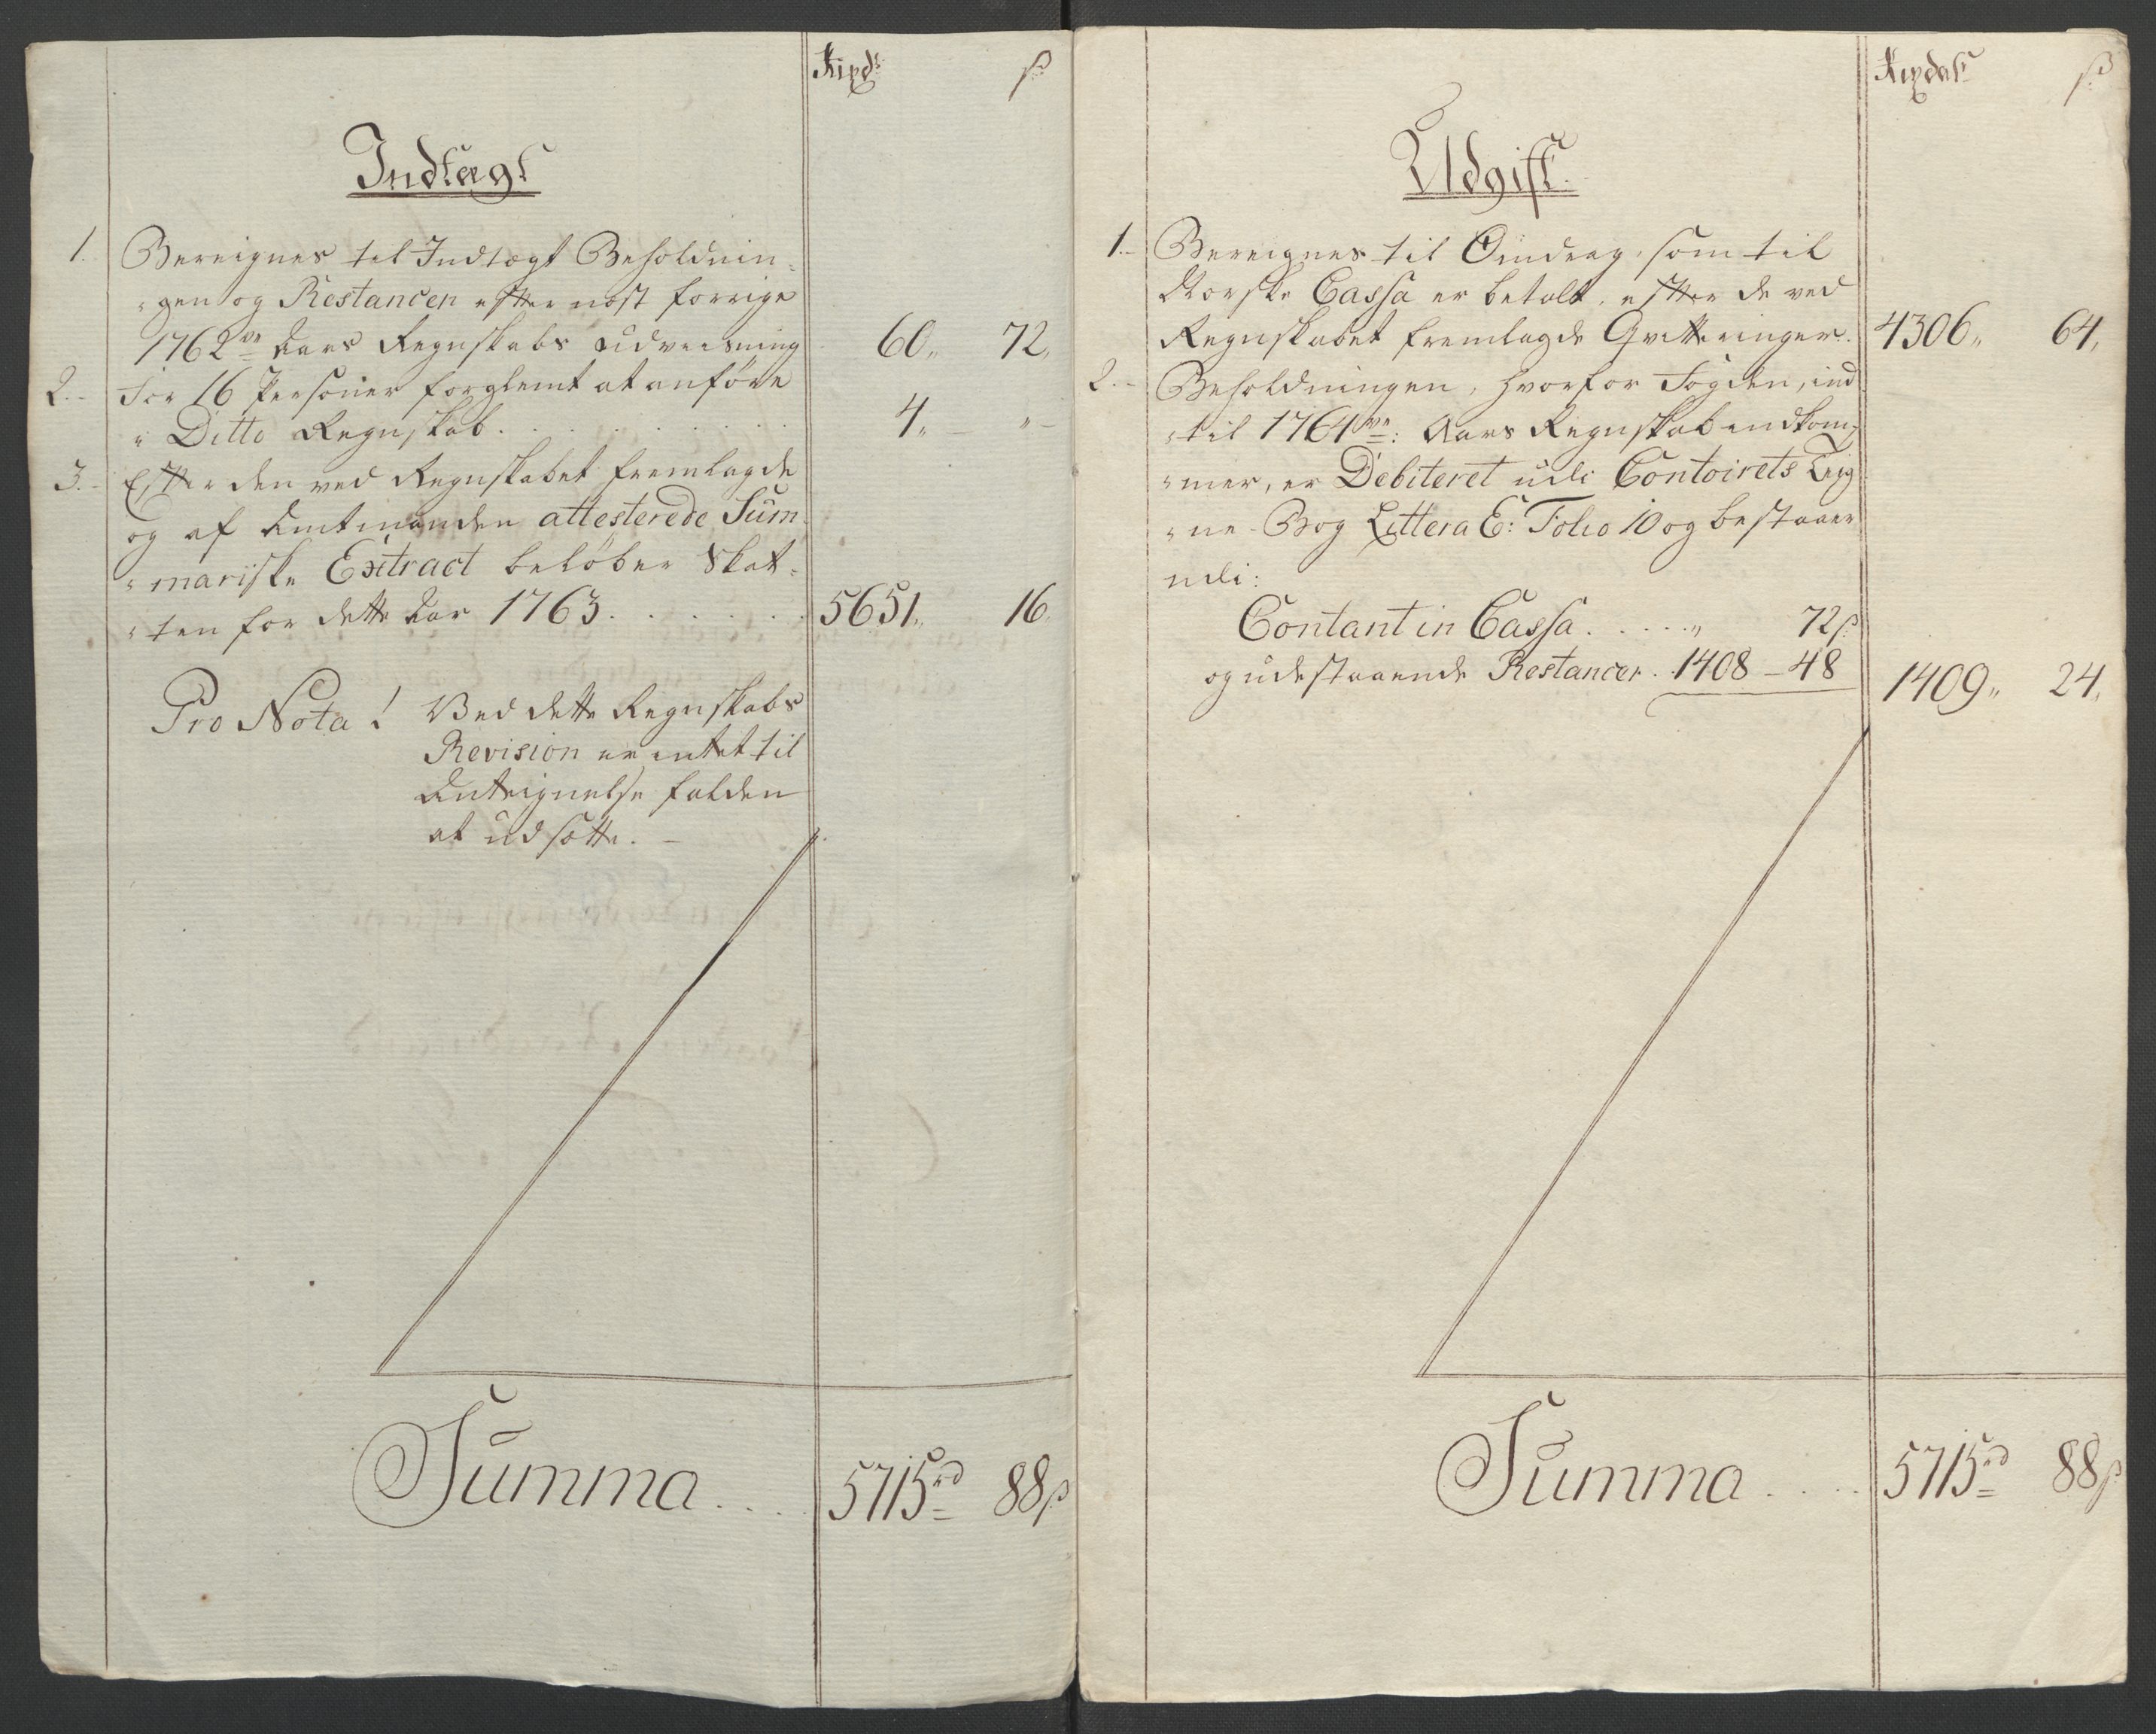 Rixd: ß
Indtægt
1. Bereignes til Indtægt Beholdnin-
gen og Restancen efter nost forrige
1762de Aars Regnskabs udviisning 60,, 72,
2.- For 16 Personer forglemt at anføre
i Ditto Regnskab . . . . . . . . . 4,, "-
3.- Efter den ved Regnskabet fremlagde
og af Amtmanden attesterede Sum-
mariske Extract beløber Skat-
ten for dette Aar 1763 . . . . . . 5651,, 16.
Pro Nota! Ved dette Regnskabs
Revision er intet til
Anteignelse falden
at udsætte. -
Summa . . . 5715rd 88ß
Rixdal: ß
Udgift.
1.- Bereignes til Omdrag, som til
Norske Cassa er betalt, efter de ved
Regnskabet fremlagde Qvitteringer. 4306,, 64,
2.- Beholdningen, hvorfor Fogden, ind
til 1764de: Aars Regnskab indkom-
mer, er Debiteret udi Contoirets Teig-
ne-Bog Littera E: Folio 10 og bestaaer
udi:
Contant in Cassa . . . . " 72ß
og udestaaende Restancer. 1408 - 48 1409,, 24,
Summa . . . . 5715rd 88ß